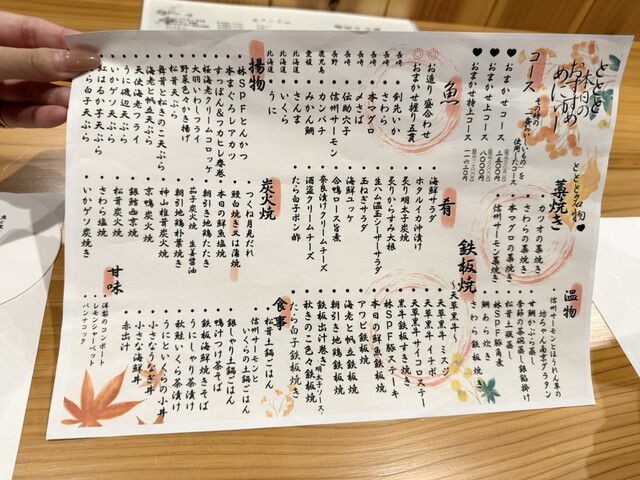 とととと
本日の
おすすめ
めにゅー
コース
その時の一番いいものを
使用したコース
♥おまかせコース
♥おまかせ上コース
8000円
♥おまかせ特上コース
魚
◎お造り盛合わせ
◎おまかせ握り五貫
長崎 剣先いか
長崎 さわら
長崎 本マグロ
長崎 〆さば
長崎 伝助穴子
信州サーモン
鹿児島 カンパチ
愛媛 みかん鯛
北海道 さんま
北海道 いくら
北海道 うに
揚物
林SPFとんかつ
本まぐろレアカツ
すっぽん&フカヒレ春巻
桜海老クリームコロッケ
大羽いわしフライ
野菜色々かき揚げ
松茸天ぷら
舞茸と松きのこ天ぷら
海老と帆立天ぷら
天使海老フライ
うに磯辺天ぷら
いかゲソ天ぷら
紅はるか芋天ぷら
たら白子天ぷら
とととと名物♥
藁焼き
カツオの藁焼き
さわらの藁焼き
本マグロの藁焼き
信州サーモン藁焼き
肴
海鮮サラダ
ホタルイカ沖漬け
炙り明太子
炙りからすみ大根
生ハム温玉シーザーサラダ
玉ねぎサラダ
海鮮ユッケ
合鴨ロース旨煮
奈良漬けクリームチーズ
酒盗クリームチーズ
たら白子ポン酢
炭火焼
つくね月見だれ
鰻白焼き又は蒲焼
本日の鮮魚塩焼
朝引き地鶏たたき
茄子炭火焼 生姜醤油
朝引地鶏朴葉焼き
神山椎茸炭火焼
京鴨炭火焼
銀鱈西京焼
松茸炭火焼
さわら塩焼
いかゲソ炭焼き
甘味
・洋梨のコンポート
・レモンシャーベット
・パンナコッタ
温物
信州サーモンとほうれん草の
坊ちゃん南京グラタン
甘鯛かぶら蒸し
季節の茶碗蒸し銀餡掛け
松茸土瓶蒸し
林SPF豚角煮
鯛あら炊き
さわら鉄板焼き
鉄板焼
〜天草黒牛〜
天草黒牛 ミスジ
天草黒牛 イチボ
天草黒牛サイコロステーキ
黒牛鉄板すき焼き
林SPF豚ステーキ
本日の鮮魚鉄板焼
アワビ鉄板焼
海老と帆立鉄板焼
朝引き地鶏鉄板焼
鉄板出汁巻き
秋きのこ色々鉄板焼
たら白子鉄板焼き
食事
信州サーモンと
いくらの土鍋ごはん
松茸土鍋ごはん
銀しゃり土鍋ごはん
鴨汁つけ茶そば
鉄板海鮮焼きそば
うにしゃり茶漬け
秋鮭いくら茶漬け
うにといくらの小丼
小さなうなぎ丼
小さな海鮮丼
赤出汁